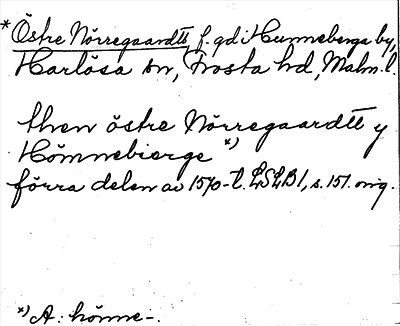 *Östre Nörregaardtt, f. gd i Hunneberga by,
Harlösa sn, Frosta hd, Malm. l.
then östre Nörregaardtt y
Hömnebierge *)
förra delen av 1570-t. LSLB1, s. 151. orig.
*) A: hömne-.